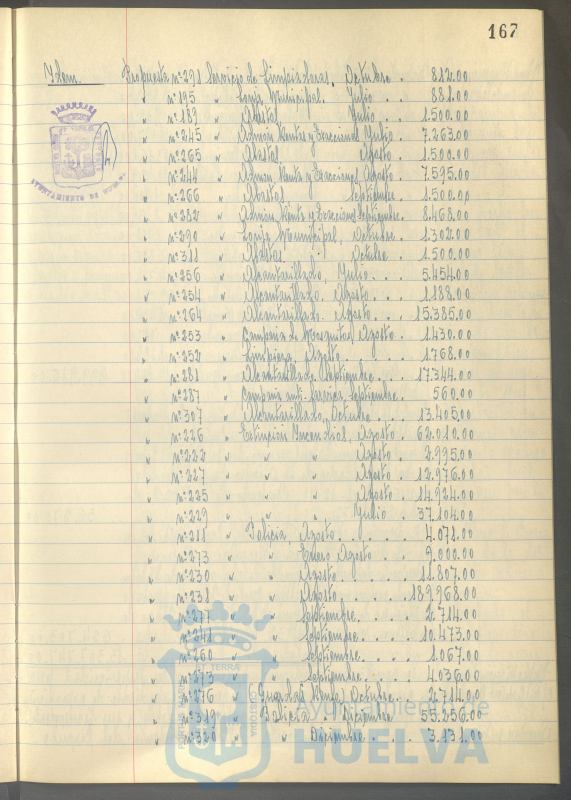 167
Idem. Propuesta nº 291 Servicio de Limpiadoras, Octubre . 812.00
" nº 195 " Lonja Municipal. Julio . . 881.00
" nº 189 " Abastos Julio . . 1.500.00
" nº 245 " Admon Rentas y Exacciones Julio . 7.263.00
" nº 265 " Abastos Agosto . 1.500.00
" nº 244 " Admon Renta y Exacciones Agosto. 7.595.00
" nº 266 " Abastos Septiembre . 1.500.00
" nº 282 " Admon Renta y Exacciones Septiembre. 8.468.00
" nº 290 " Lonja Municipal, Octubre . 1.302.00
" nº 311 " Abastos. Octubre . 1.500.00
" nº 256 " Alcantarillado, Julio . . 5.454.00
" nº 254 " Alcantarillado, Agosto . . . 1.188.00
" nº 264 " Alcantarillado. Agosto . . . 15.385.00
" nº 253 " Campaña de Mosquitos Agosto . 1.430.00
" nº 252 " Limpieza, Agosto . . . . 1.768.00
" nº 281 " Alcantarillado Septiembre . . 17.344.00
" nº 287 " Campaña anti-larvaria, Septiembre. 560.00
" nº 307 " Alcantarillado, Octubre . . . 13.405.00
" nº 226 " Extinción Incendios, Agosto . 62.010.00
" nº 222 " " " Agosto . 2.995.00
" nº 227 " " " Agosto . 12.976.00
" nº 225 " " " Agosto . 14.924.00
" nº 229 " " " Julio . 37.104.00
" nº 211 " Policia, Agosto . . . . . 4.071.00
" nº 273 " " Enero Agosto . . 9.000.00
" nº 230 " " Agosto . . . . . 11.807.00
" nº 231 " " Agosto . . . . 189.968.00
" nº 277 " " Septiembre. . . . 2.714.00
" nº 241 " " Septiembre. . . . 10.473.00
" nº 260 " " Septiembre. . . . 1.067.00
" nº 273 " " Septiembre. . . . 4.036.00
" nº 276 " Guardas Octubre . . 2.714.00
" nº 319 " Policia Diciembre 55.256.00
" nº 320 " " Diciembre . . 3.131.00
AYUNTAMIENTO DE HUELVA
Ayuntamiento de
HUELVA